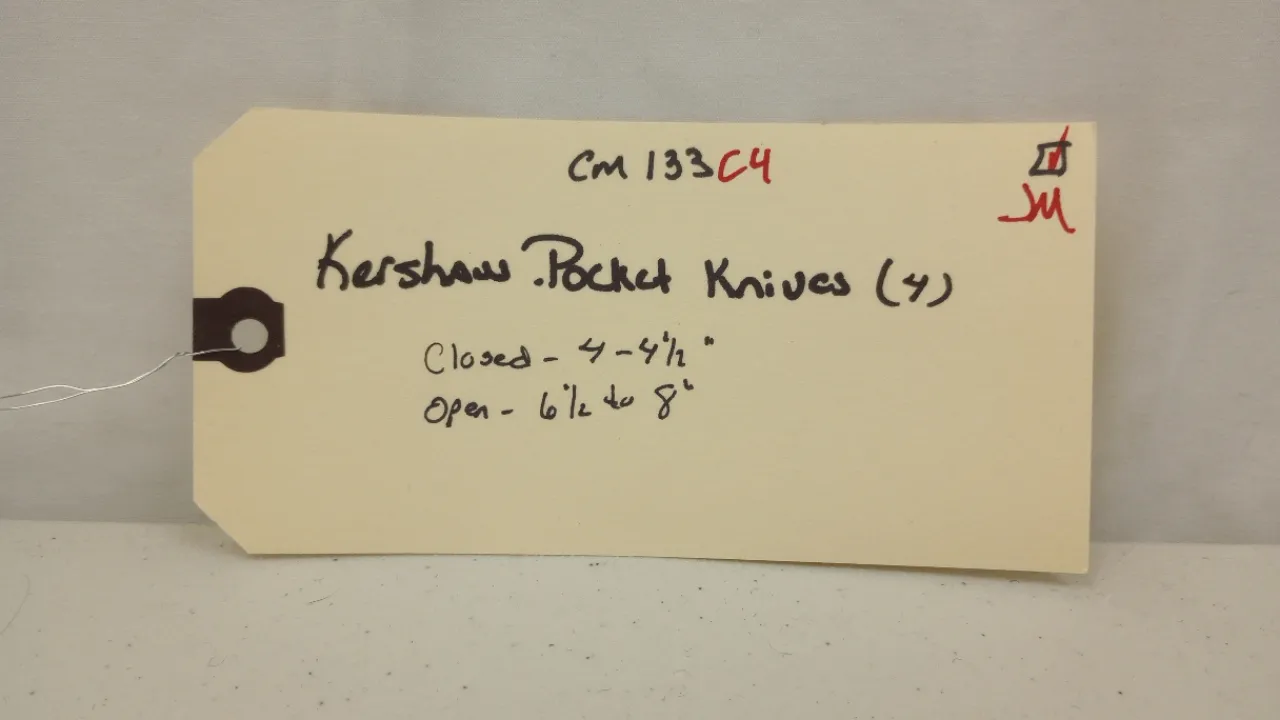 CM 133C4
JM
Kershaw Pocket Knives (4)
Closed - 4 - 4 1/2 "
Open - 6 1/2 to 8"